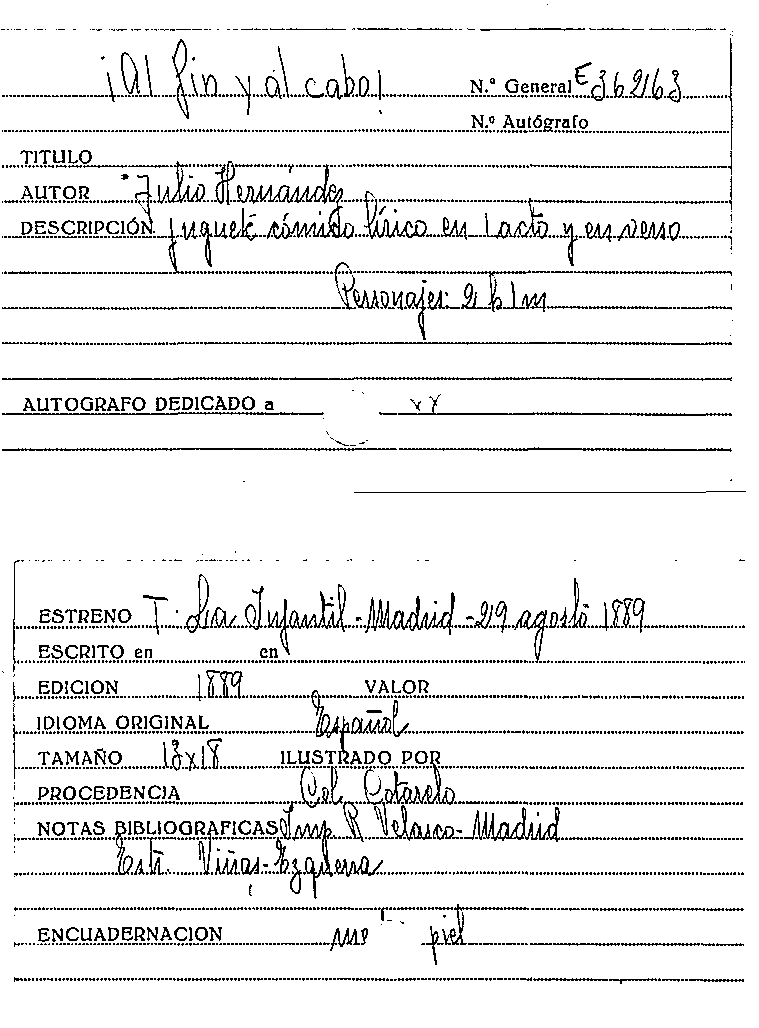 ¡Al fin y al cabo!
N.º General E 36263
N.º Autógrafo
TITULO
AUTOR Julio Hernández
DESCRIPCIÓN Juguete cómico lírico en 1 acto y en verso
Personajes: 2 h 1 m
AUTOGRAFO DEDICADO a
ESTRENO T. La Infantil - Madrid - 29 agosto 1889
ESCRITO en en
EDICION 1889 VALOR
IDIOMA ORIGINAL Español
TAMAÑO 13x18 ILUSTRADO POR
PROCEDENCIA Col. Cotarelo
NOTAS BIBLIOGRAFICAS Imp R Velasco - Madrid
Estr. Viñas - Ezquerra
ENCUADERNACION piel